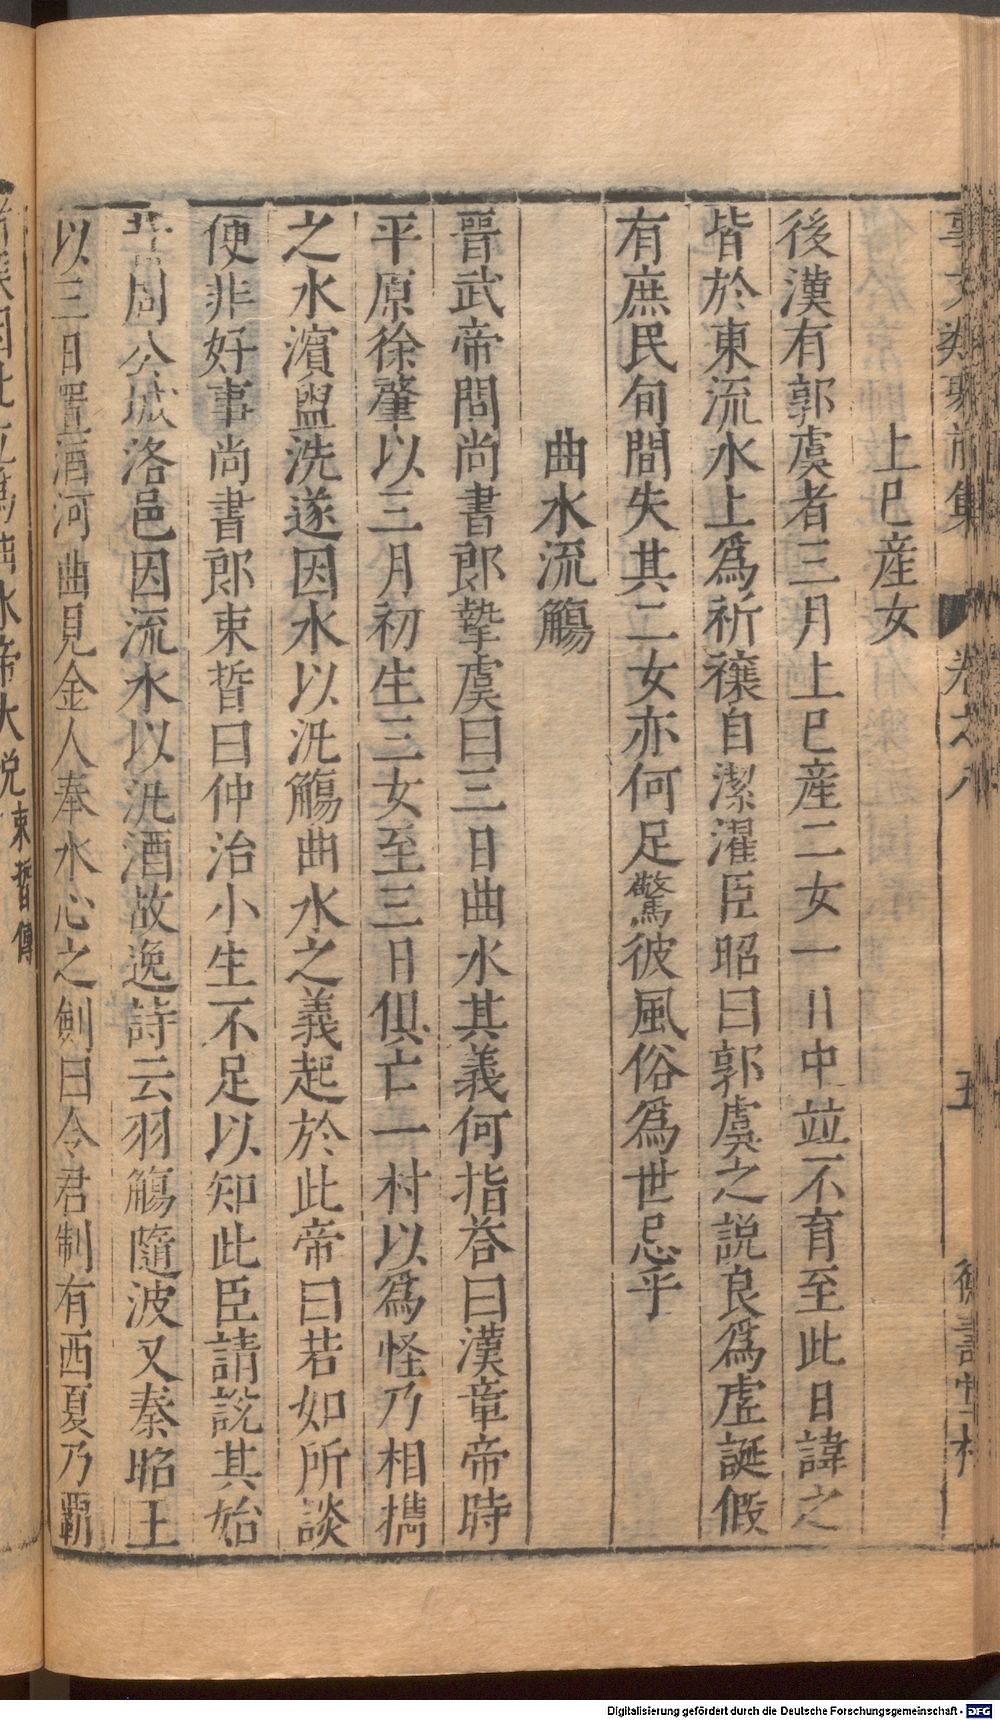 事文類聚前集 卷之八 五 德壽堂梓
上巳産女
後漢有郭虞者三月上巳産二女一日中並不育至此日諱之
皆於東流水上爲祈禳自潔濯臣昭曰郭虞之説良爲虛誕假
有庶民旬間失其二女亦何足驚彼風俗爲世忌乎
曲水流觴
晋武帝問尚書郎摯虞曰三日曲水其義何指荅曰漢章帝時
平原徐肇以三月初生三女至三日俱亡一村以爲怪乃相攜
之水濱盥洗遂因水以泛觴曲水之義起於此帝曰若如所談
便非好事尚書郎束晳曰仲治小生不足以知此臣請説其始
昔周公城洛邑因流水以泛酒故逸詩云羽觴隨波又秦昭王
以三日置酒河曲見金人奉水心之劍曰令君制有西夏乃覇
水帝大説束晳傳
Digitalisierung gefördert durch die Deutsche Forschungsgemeinschaft - DFG